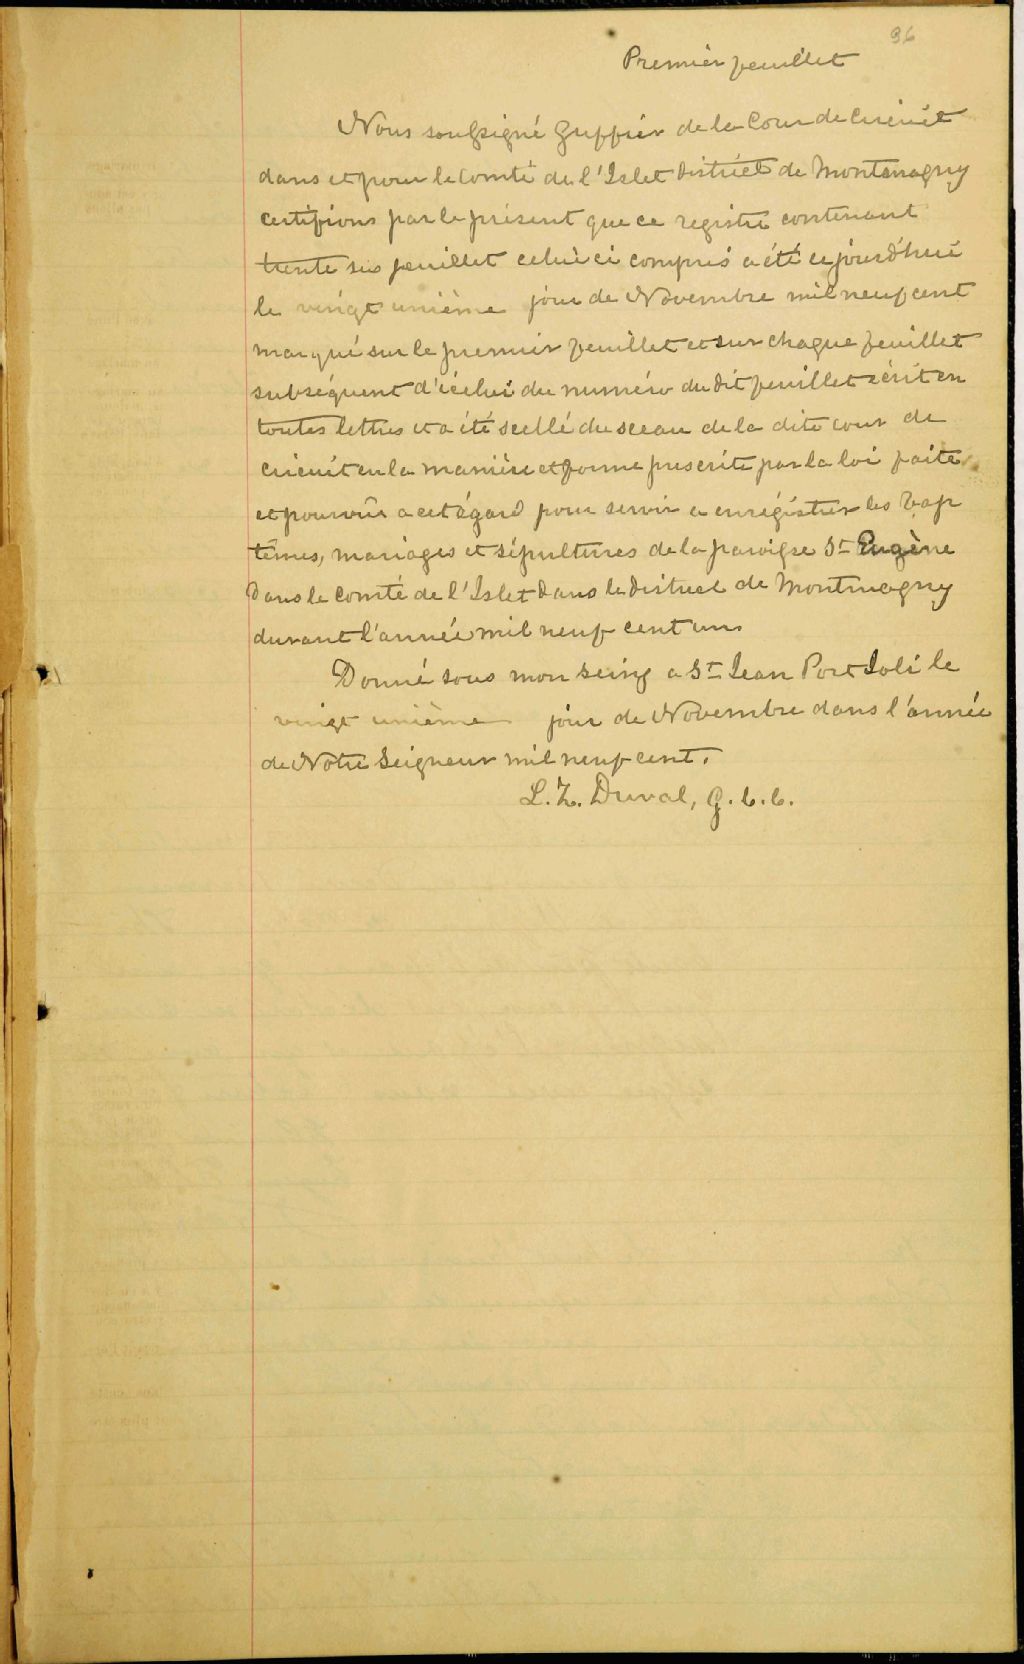 36
Premier feuillet
Nous soussigné Greffier de la Cour de Circuit
dans et pour le Comté de l'Islet District de Montmagny
certifions par le présent que ce registre contenant
trente six feuillet celui ci compris a été ce jourd'hui
le vingt unième jour de Novembre mil neuf cent
marqué sur le premier feuillet et sur chaque feuillet
subséquent d'icelui du numéro du dit feuillet écrit en
toutes lettres et a été scellé du sceau de la dite cour de
circuit en la manière et forme prescrite par la loi faite
et pourvûe a cet égard pour servir a enrégistrer les bap
têmes, mariages et sépultures de la paroisse St Eugène
dans le comté de l'Islet dans le district de Montmagny
durant l'année mil neuf cent un
Donné sous mon seing a St Jean Port Joli le
vingt unième jour de Novembre dans l'année
de Notre Seigneur mil neuf cent.
L. Z. Duval, g.c.c.